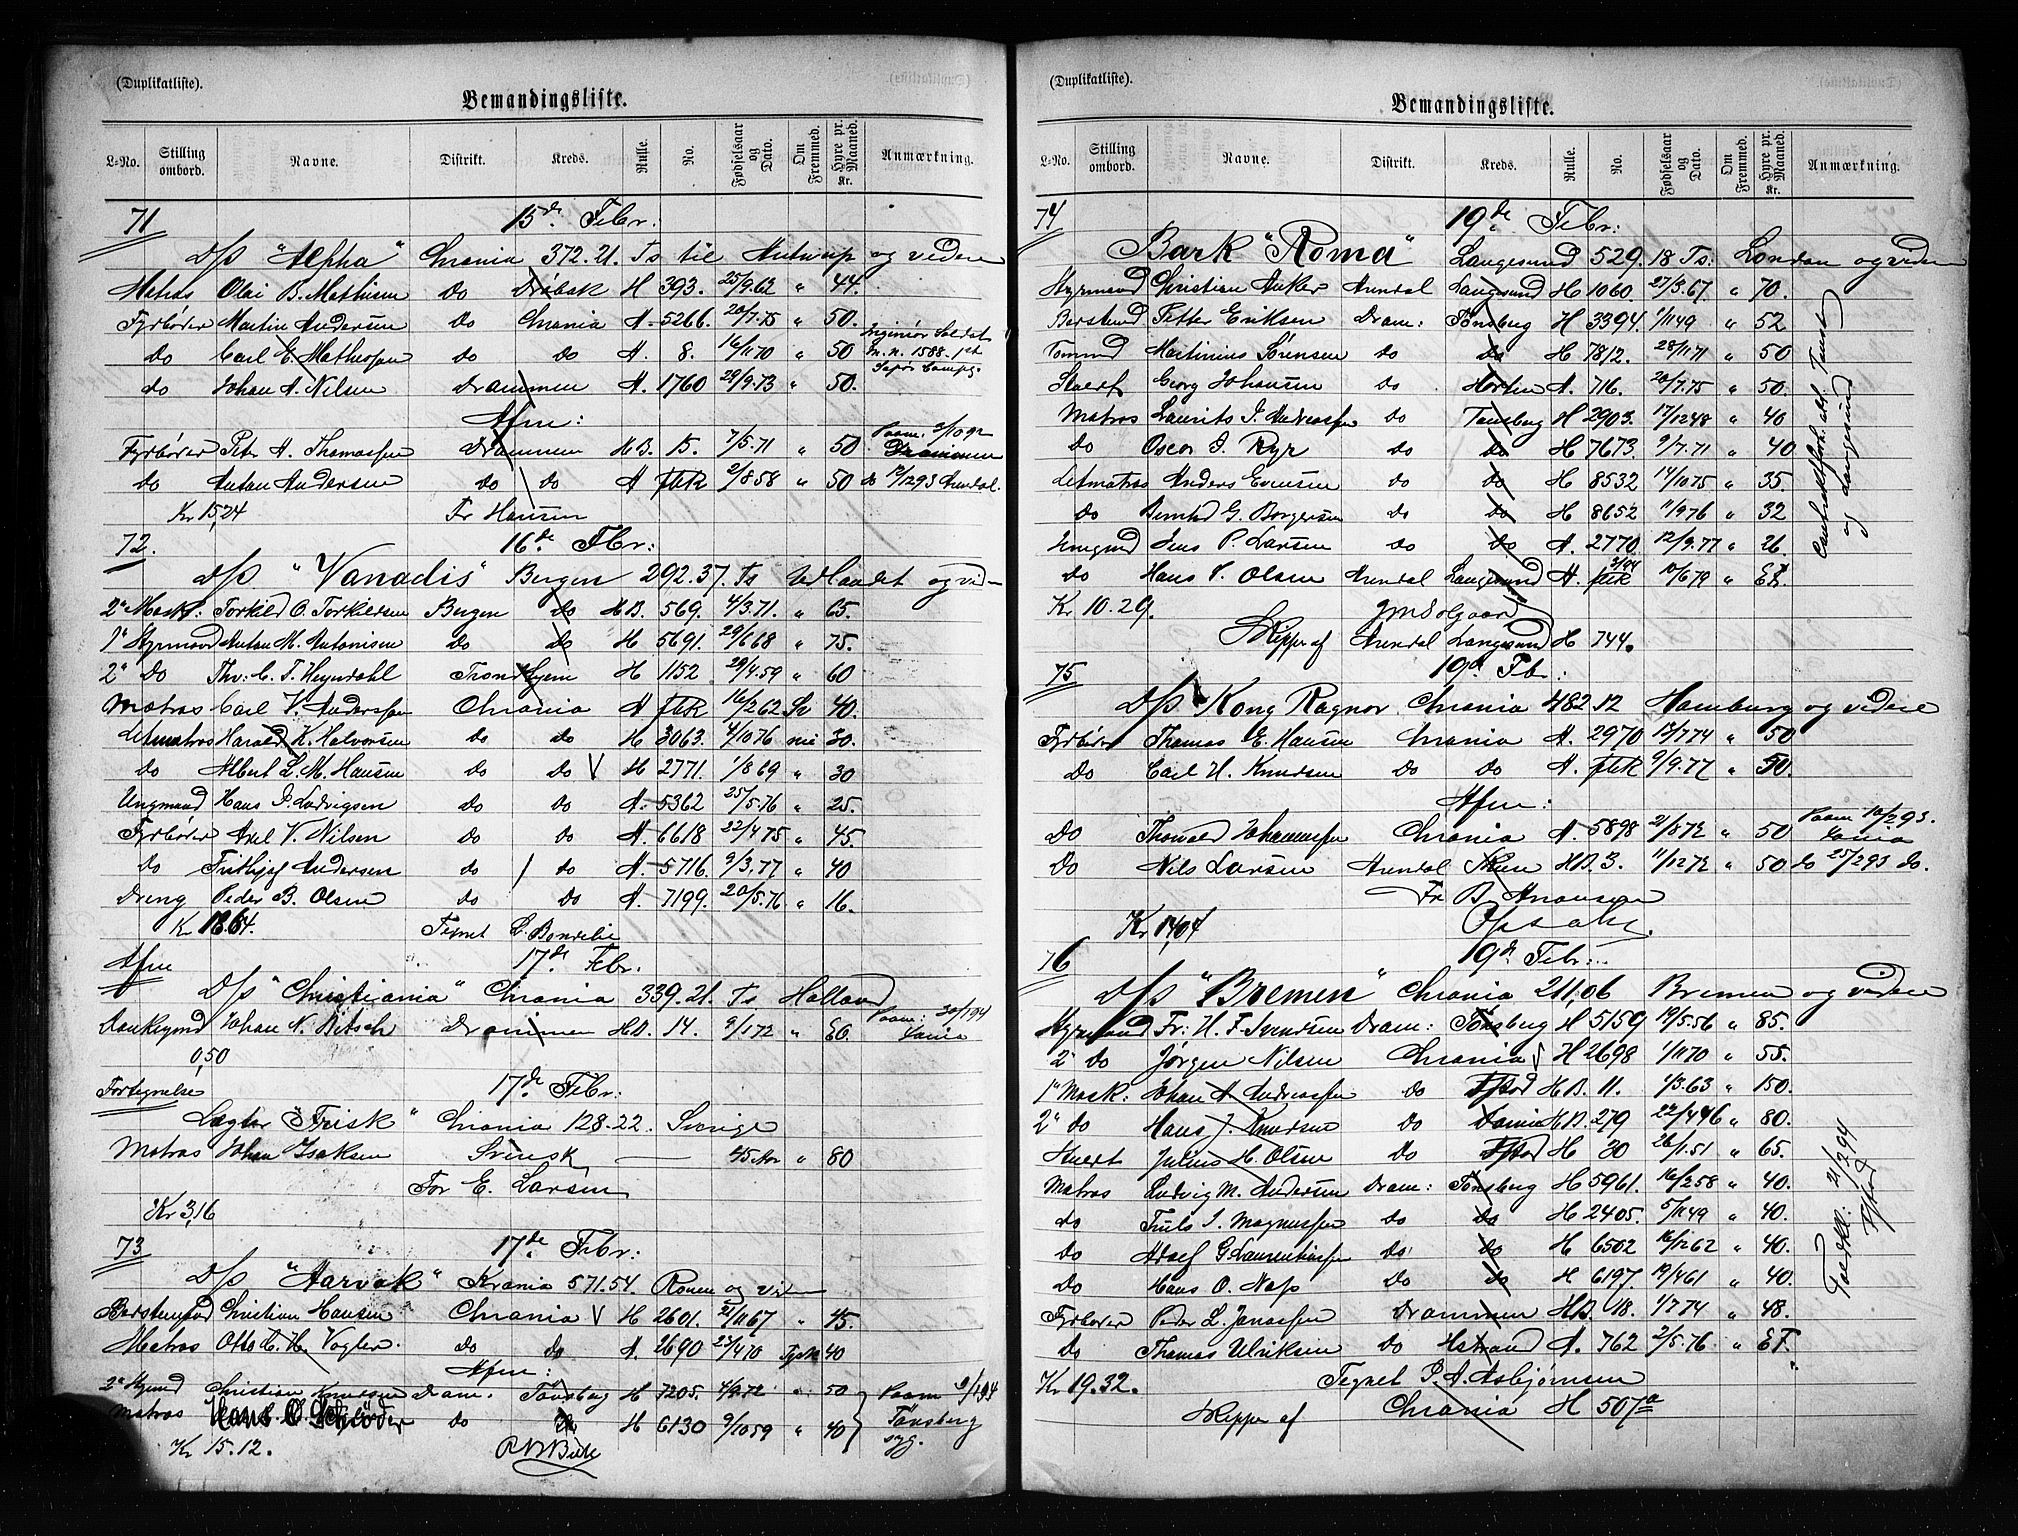 (Duplikatliste).
Bemandingsliste.
L=No. Stilling ombord. Navne. Distrikt. Kreds. Rulle. No. Fødselsaar og Dato. Om Fremmed. Hyre pr. Maaned. Kr. Anmærkning.
71 15de Febr:
D/S "Alpha" Chrania 372.21. Ts til Antwerp og videre
Matros Olai B. Mathisen Do Drøbak H 393. 25/9.62 " 44.
Fyrbøder Martin Andersen Do Chrania A. 5266. 20/7.75 " 50.
do Carl E. Mathessen do do A. 8. 16/1170 " 50 Ingeniør Soldat
M.N. 1588. 1st
Sapør Compg.
do Johan A. Nilsen Drammen A. 1760 29/9.73 " 50.
Afm:
Fyrbøder Peter A. Thomassen Drammen H.B. 15. 7/5.71 " 50 Paam. 3/1092
Drammen
do Anton Andersen do do A ftk 2/858 " 50 do 12/1293 Arendal.
Kr 15,24 Fr Hansen
72. 16de Fbr:
D/S "Vanadis" Bergen 292.37. Ts Udlandet og vid
2n Mask: Torkild O. Torkildsen Bergen do H.B. 569. 4/3.71. " 65.
1n Styrmand Anton M. Antonisen do do H 5691. 29/668 " 75.
2n do Thv: C. F. Heyerdahl Trondhjem H 1152 29/4.59 " 60
Matros Carl V. Anderssen Chrania A ftk 16/262 Sv 40.
Letmatros Harald K. Halvorsen do do H 3063. 4/1076 nei 30.
do Albert L. M. Hansen do do V H 2771. 1/869 " 30
Ungmand Hans P. Ludvigsen do do A. 5362 25/5.76 " 25.
Fyrbøder Axel V. Nilsen do do A. 6618 22/475 " 45.
do Fridtjof Andersen do / do A. 5716 9/3.77 " 40
Dreng Peder B. Olsen do do A. 7199. 20/5.76 " 16.
Kr 18.64. Tegnet
Afm 17de Febr.
D/S "Christiania" Chrania 339.21. Ts Holland
Donkeymd Johan N. Ritsch Drammen H.B. 14. 9/172 " 60. Paam: 30/194
Xania
0,50
Fortegnelse 17de Febr:
Lægter "Frisk" Chrania 128.22. Sverige
Matros Johan Isaksen Svensk — 45 Aar " 80
For E. Larsen
Kr 3,16
73 17de Febr:
D/S "Aarvak" Krania 571.54. Rouen og vid
Baadsmand Christian Hansen Chrania V H 2601. 21/1167 " 45.
Matros Otto C. H. Vogler. do do A. 2690 23/470 Tysk 40
Afm.
2n Stymd Christian Knudsen Dram. Tönsberg H 7205. 4/972 " 50 Paam 9/194
Matros Hans O. Schrøder do do H 6130 9/1059 " 40 Tønsberg
syg.
Kr 15.12.
(Duplikatliste).
Bemandingsliste.
L=No. Stilling ombord. Navne. Distrikt. Kreds. Rulle. No. Fødselsaar og Dato. Om Fremmed. Hyre pr. Maaned. Kr. Anmærkning.
74 19de Febr:
Bark "Roma" Langesund 529.18 Ts: London og videre
Styrmand Christian Anker Arendal Langesund H 1060. 27/3.67 " 70.
Baadsmd Petter Eriksen Dram: Tönsberg H 3394. 1/1149 " 52
Tømmd Martinius Sørensen do do H 7812. 28/1171 " 50
Stuert Georg Johansen do Horten A. 716. 20/7.75 " 50.
Matros Laurits J. Andreassen do Tønsberg H 2903. 17/1248 " 40
do Oscar J. Ryr do do H 7673. 9/7.71 " 40
Letmatros Anders Evensen do do H 8532 14/1075 " 35.
do Bernhd G. Borgersen do do H 8652 11/976 " 32
Jungmd Jens P. Larsen do do A. 2770. 12/9.77 " 26.
do Hans V. Olsen Arendal Langesund A. ftk 10/679 " Ef.
og Langesund
Kr 10.29.
Skipper af Arendal Langesund H 744.
75 19de Fbr:
D/S Kong Ragnar Chrania 482.12 Hamburg og videre
Fyrbøder Thomas E. Hansen Chrania A. 2970 15/774 " 50
Do Carl H. Knudsen Do Do A. ftk 9/9.77 " 50.
Afm:
Do Thorvald Johannessen Chrania A 5898 21/872 " 50 Paam 10/293.
Xania
Do Nils Larsen Arendal Skien H.B. 3. 11/1272 " 50 do 25/293 do.
Fr B. Aronsen
Kr 14,04
76 19de Febr:
D/S "Bremen" Chrania 211.06 Bremen og videre
Styrmand Fr: H. F. Svendsen Dram: Tönsberg H 5159 19/5.56 " 85.
2n do Jørgen Nilsen Chrania V H 2698 1/1170 " 55.
1n Mask: Johan A Andreassen do Fstad H.B. 11. 1/3.63 " 150.
2n do Hans J. Knudsen do Xania H.B. 279 " 80.
Stuert Julius H. Olsen Do Fstad H 30 26/1.51 " 65.
Matros Ludvig M. Andersen Dram: Tönsberg H 5961. 16/258 " 40.
do Truls J. Magnussen do do H 2405. 5/1149 " 40.
do Adolf G. Laurentiussen do do H 6502 16/1262 " 40.
do Hans O. Næs do do H 6197. 19/461 " 40.
Fyrbøder Peder L. Jonassen Drammen H.B. 18. 1/774 " 48.
do Thomas Ulriksen do Hstrand A. 762 2/5.76 " Ef.
21/294
Fstad
Kr 19.32. Tegnet P. A. Asbjørnsen
Skipper af Chrania H 507a